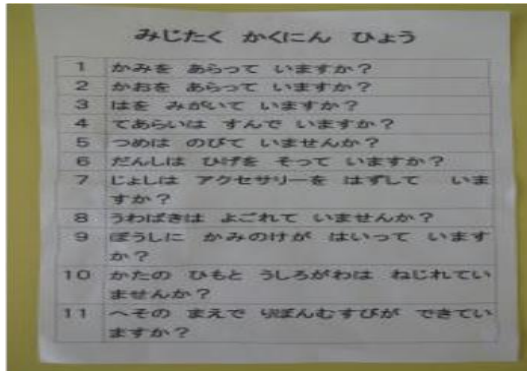 みじたく かくにん ひょう
1 かみを あらって いますか?
2 かおを あらって いますか?
3 はを みがいて いますか?
4 てあらいは すんで いますか?
5 つめは のびて いませんか?
6 だんしは ひげを そって いますか?
7 じょしは アクセサリーを はずして いま
すか?
8 うわばきは よごれて いませんか?
9 ぼうしに かみのけが はいって います
か?
10 かたの ひもと うしろがわは ねじれてい
ませんか?
11 へその まえで りぼんむすびが できてい
ますか?